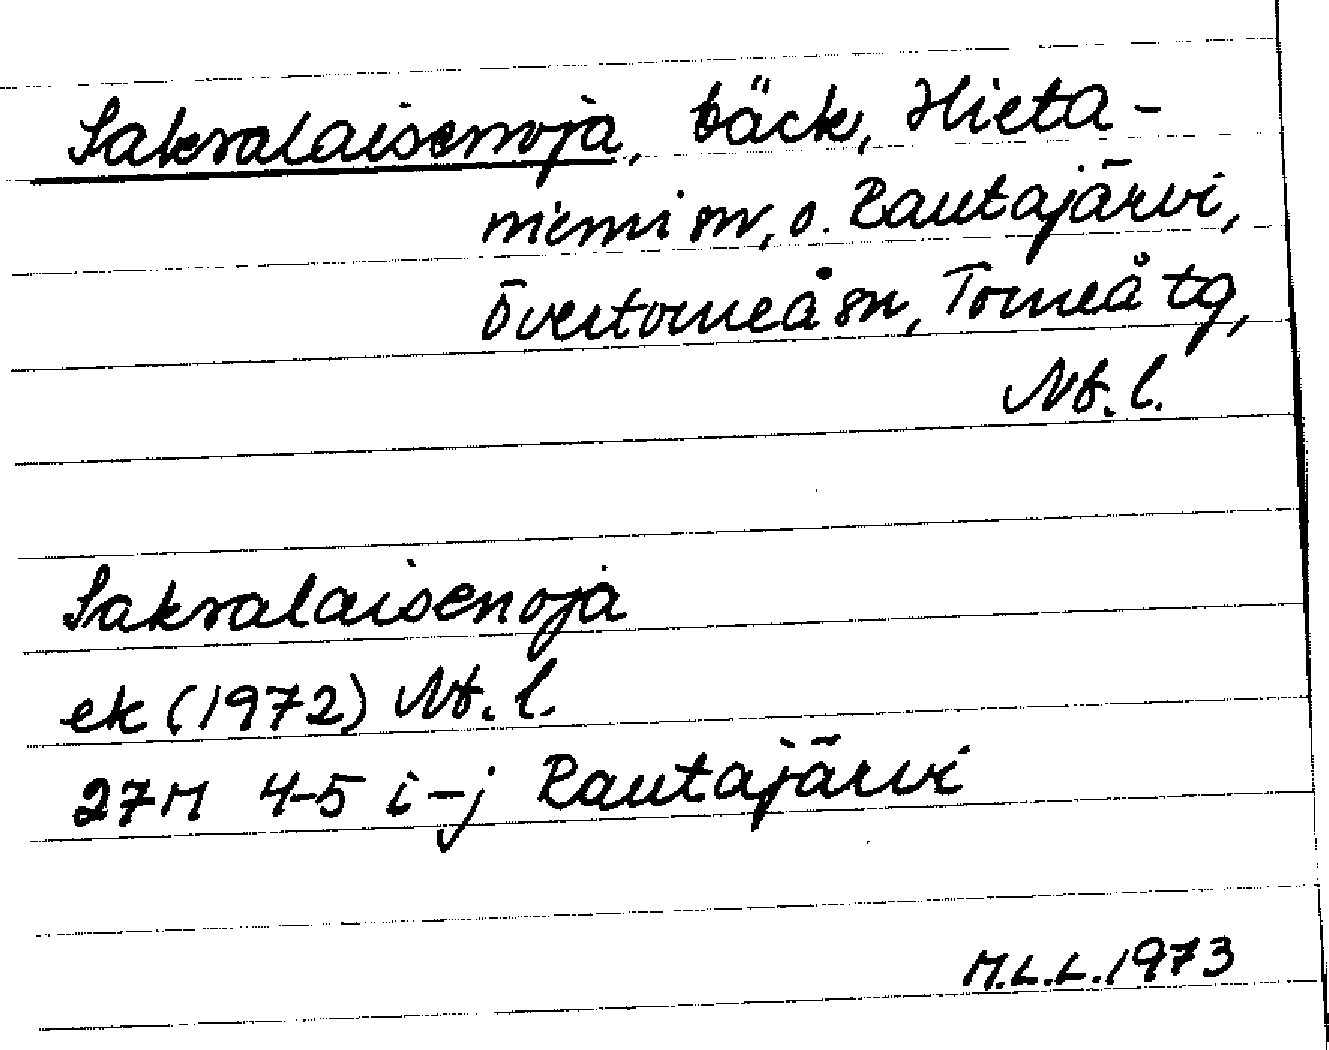 Saksalaisenoja, bäck, Hieta-
niemi sn, o. Rautajärvi,
Övertorneå sn, Torneå tg,
Nb. l.
Saksalaisenoja
ek (1972) Nb. l.
27M 4-5 i-j Rautajärvi
M.L.L. 1973